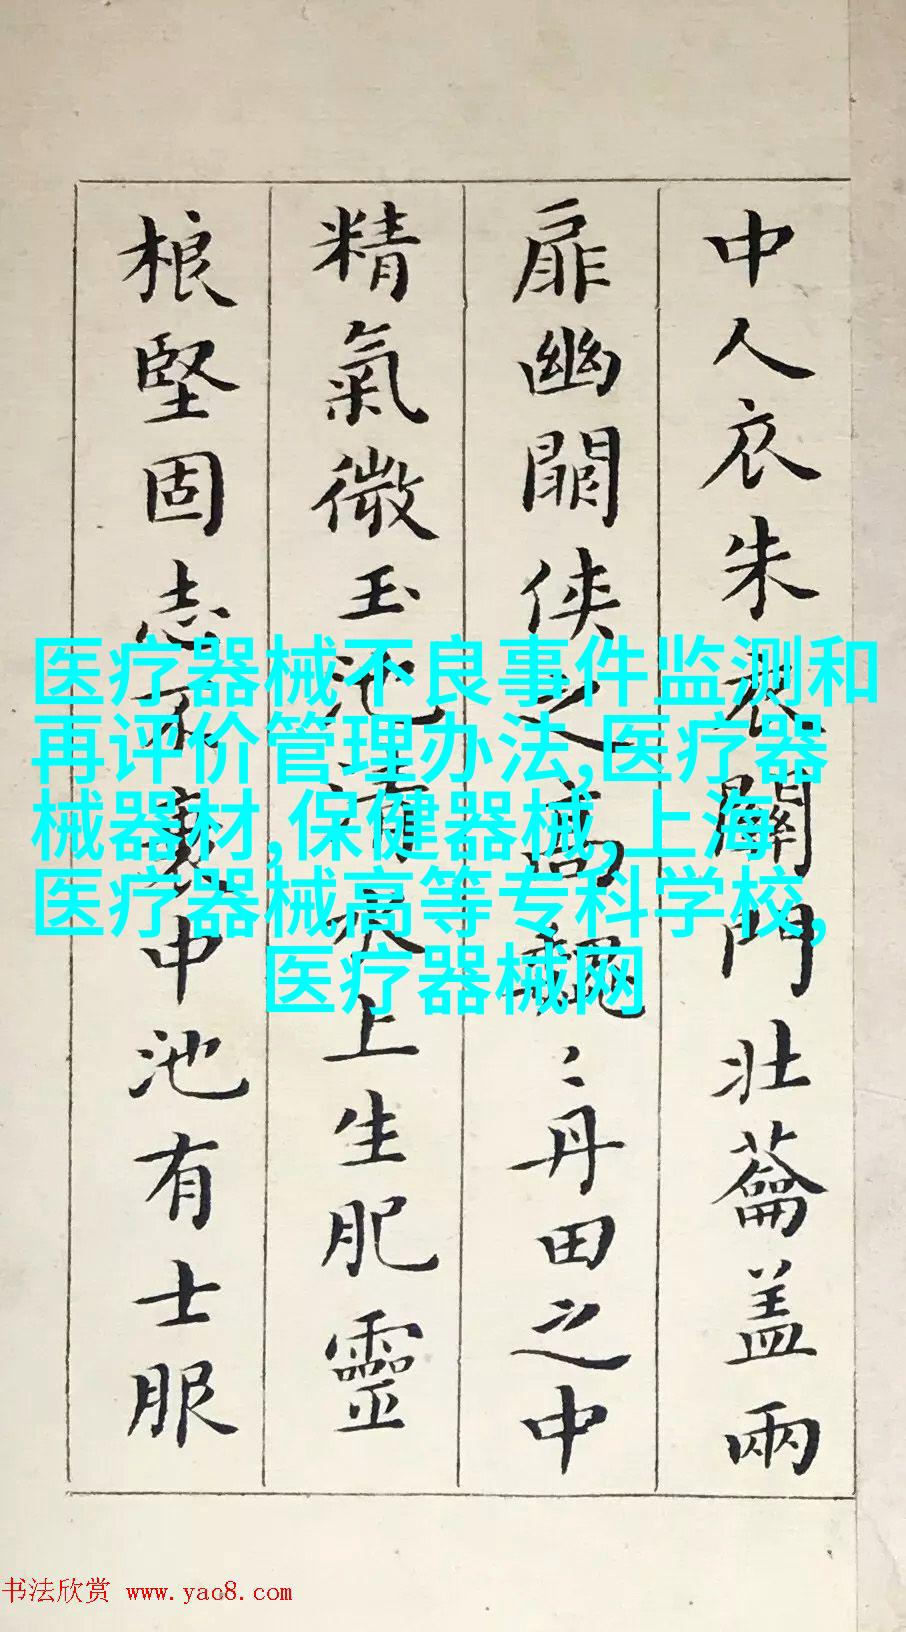 中人衣朱衣關門壯蘥盖兩
扉幽闗侠之高巍〻丹田之中
精氣微玉池清水上生肥靈
根堅固志不衰中池有士服
医疗器械不良事件监测和
再评价管理办法,医疗器
械器材,保健器械,上海
医疗器械高等专科学校,
医疗器械网
书法欣赏 www.yac8.com